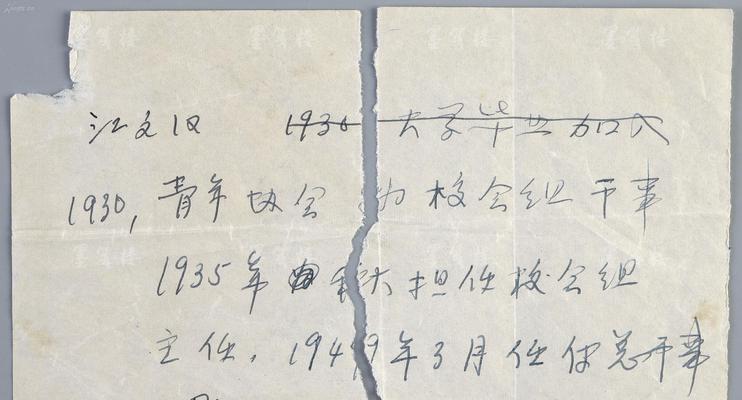 江文汉 1930 大学毕业加入
1930, 青年协会 为校会组干事
1935年 担任校会组
主任. 1949年3月任 总干事